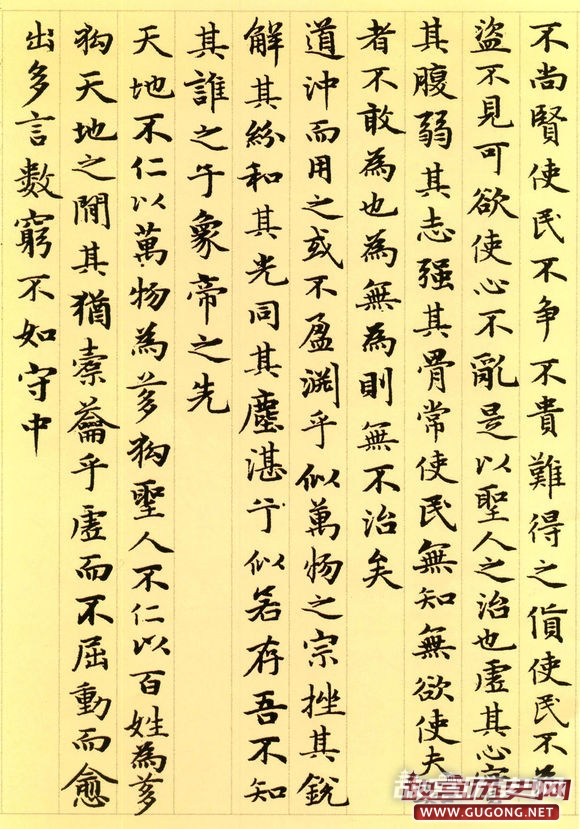 不尚賢使民不争不貴難得之貨使民不為
盜不見可欲使心不亂是以聖人之治也虛其心實
其腹弱其志强其骨常使民無知無欲使夫
者不敢為也為無為則無不治矣
道沖而用之或不盈淵乎似萬物之宗挫其銳
解其紛和其光同其塵湛兮似若存吾不知
其誰之子象帝之先
天地不仁以萬物為芻狗聖人不仁以百姓為芻
狗天地之間其猶橐籥乎虛而不屈動而愈
出多言數窮不如守中
故宫历史网
WWW.GUGONG.NET